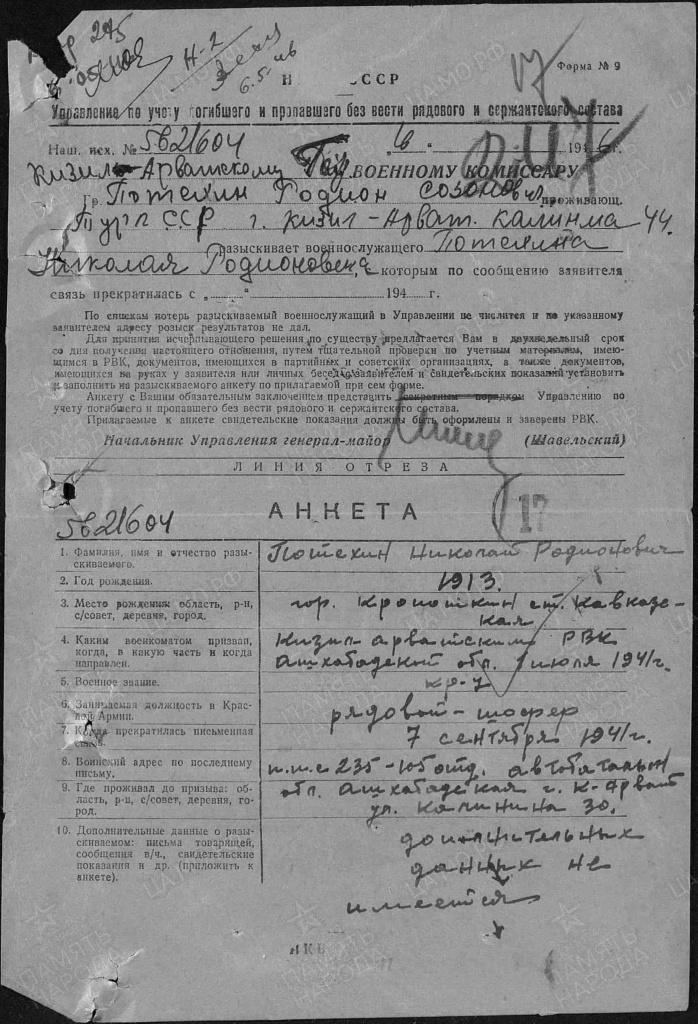 275
Н-2
6.5.
Форма № 9
Н СССР
Управление по учету погибшего и пропавшего без вести рядового и сержантского состава
Наш. исх. № 5821604 194 г.
Кизил-Арватскому ВОЕННОМУ КОМИССАРУ
Гр. Потехин Родион Созонович проживающ.
Турк ССР г. Кизил-Арват. Калинина 44.
разыскивает военнослужащего Потехина
Николая Родионовича, с которым по сообщению заявителя
связь прекратилась с „ “ 194 г.
По спискам потерь разыскиваемый военнослужащий в Управлении не числится и по указанному
заявителем адресу розыск результатов не дал.
Для принятия исчерпывающего решения по существу предлагается Вам в двухнедельный срок
со дня получения настоящего отношения, путем тщательной проверки по учетным материалам, имею-
щимся в РВК, документов, имеющихся в партийных и советских организациях, а также документов,
имеющихся на руках у заявителя или личных бесед с заявителем и свидетельских показаний установить
и заполнить на разыскиваемого анкету по прилагаемой при сем форме.
Анкету с Вашим обязательным заключением представить секретным порядком Управлению по
учету погибшего и пропавшего без вести рядового и сержантского состава.
Прилагаемые к анкете свидетельские показания должны быть оформлены и заверены РВК.
Начальник Управления генерал-майор (Шавельский)
ЛИНИЯ ОТРЕЗА
5821604
АНКЕТА
17
1. Фамилия, имя и отчество разы-
скиваемого.
Потехин Николай Родионович
2. Год рождения.
1913.
3. Место рождения область, р-н,
с/совет, деревня, город.
гор. Кропоткин ст. Кавказс-
кая
4. Каким военкоматом призван,
когда, в какую часть и когда
направлен.
Кизил-арватским РВК
Ашхабадской обл. июля 1941г.
5. Военное звание.
кр-ц
6. Занимаемая должность в Крас-
ной Армии.
рядовой-шофер
7. Когда прекратилась письменная
связь.
7 сентября 1941г.
8. Воинский адрес по последнему
письму.
п.п.с 235-105 отд. автобатальон
9. Где проживал до призыва: об-
ласть, р-н, с/совет, деревня, го-
род.
обл. Ашхабадская г. К-Арват
ул. Калинина 30.
10. Дополнительные данные о разы-
скиваемом: письма товарищей,
сообщения в/ч., свидетельские
показания и др. (приложить к
анкете).
дополнительных
данных не
имеется
ПАМЯТЬ
НАРОДА
ЦАМО.РФ